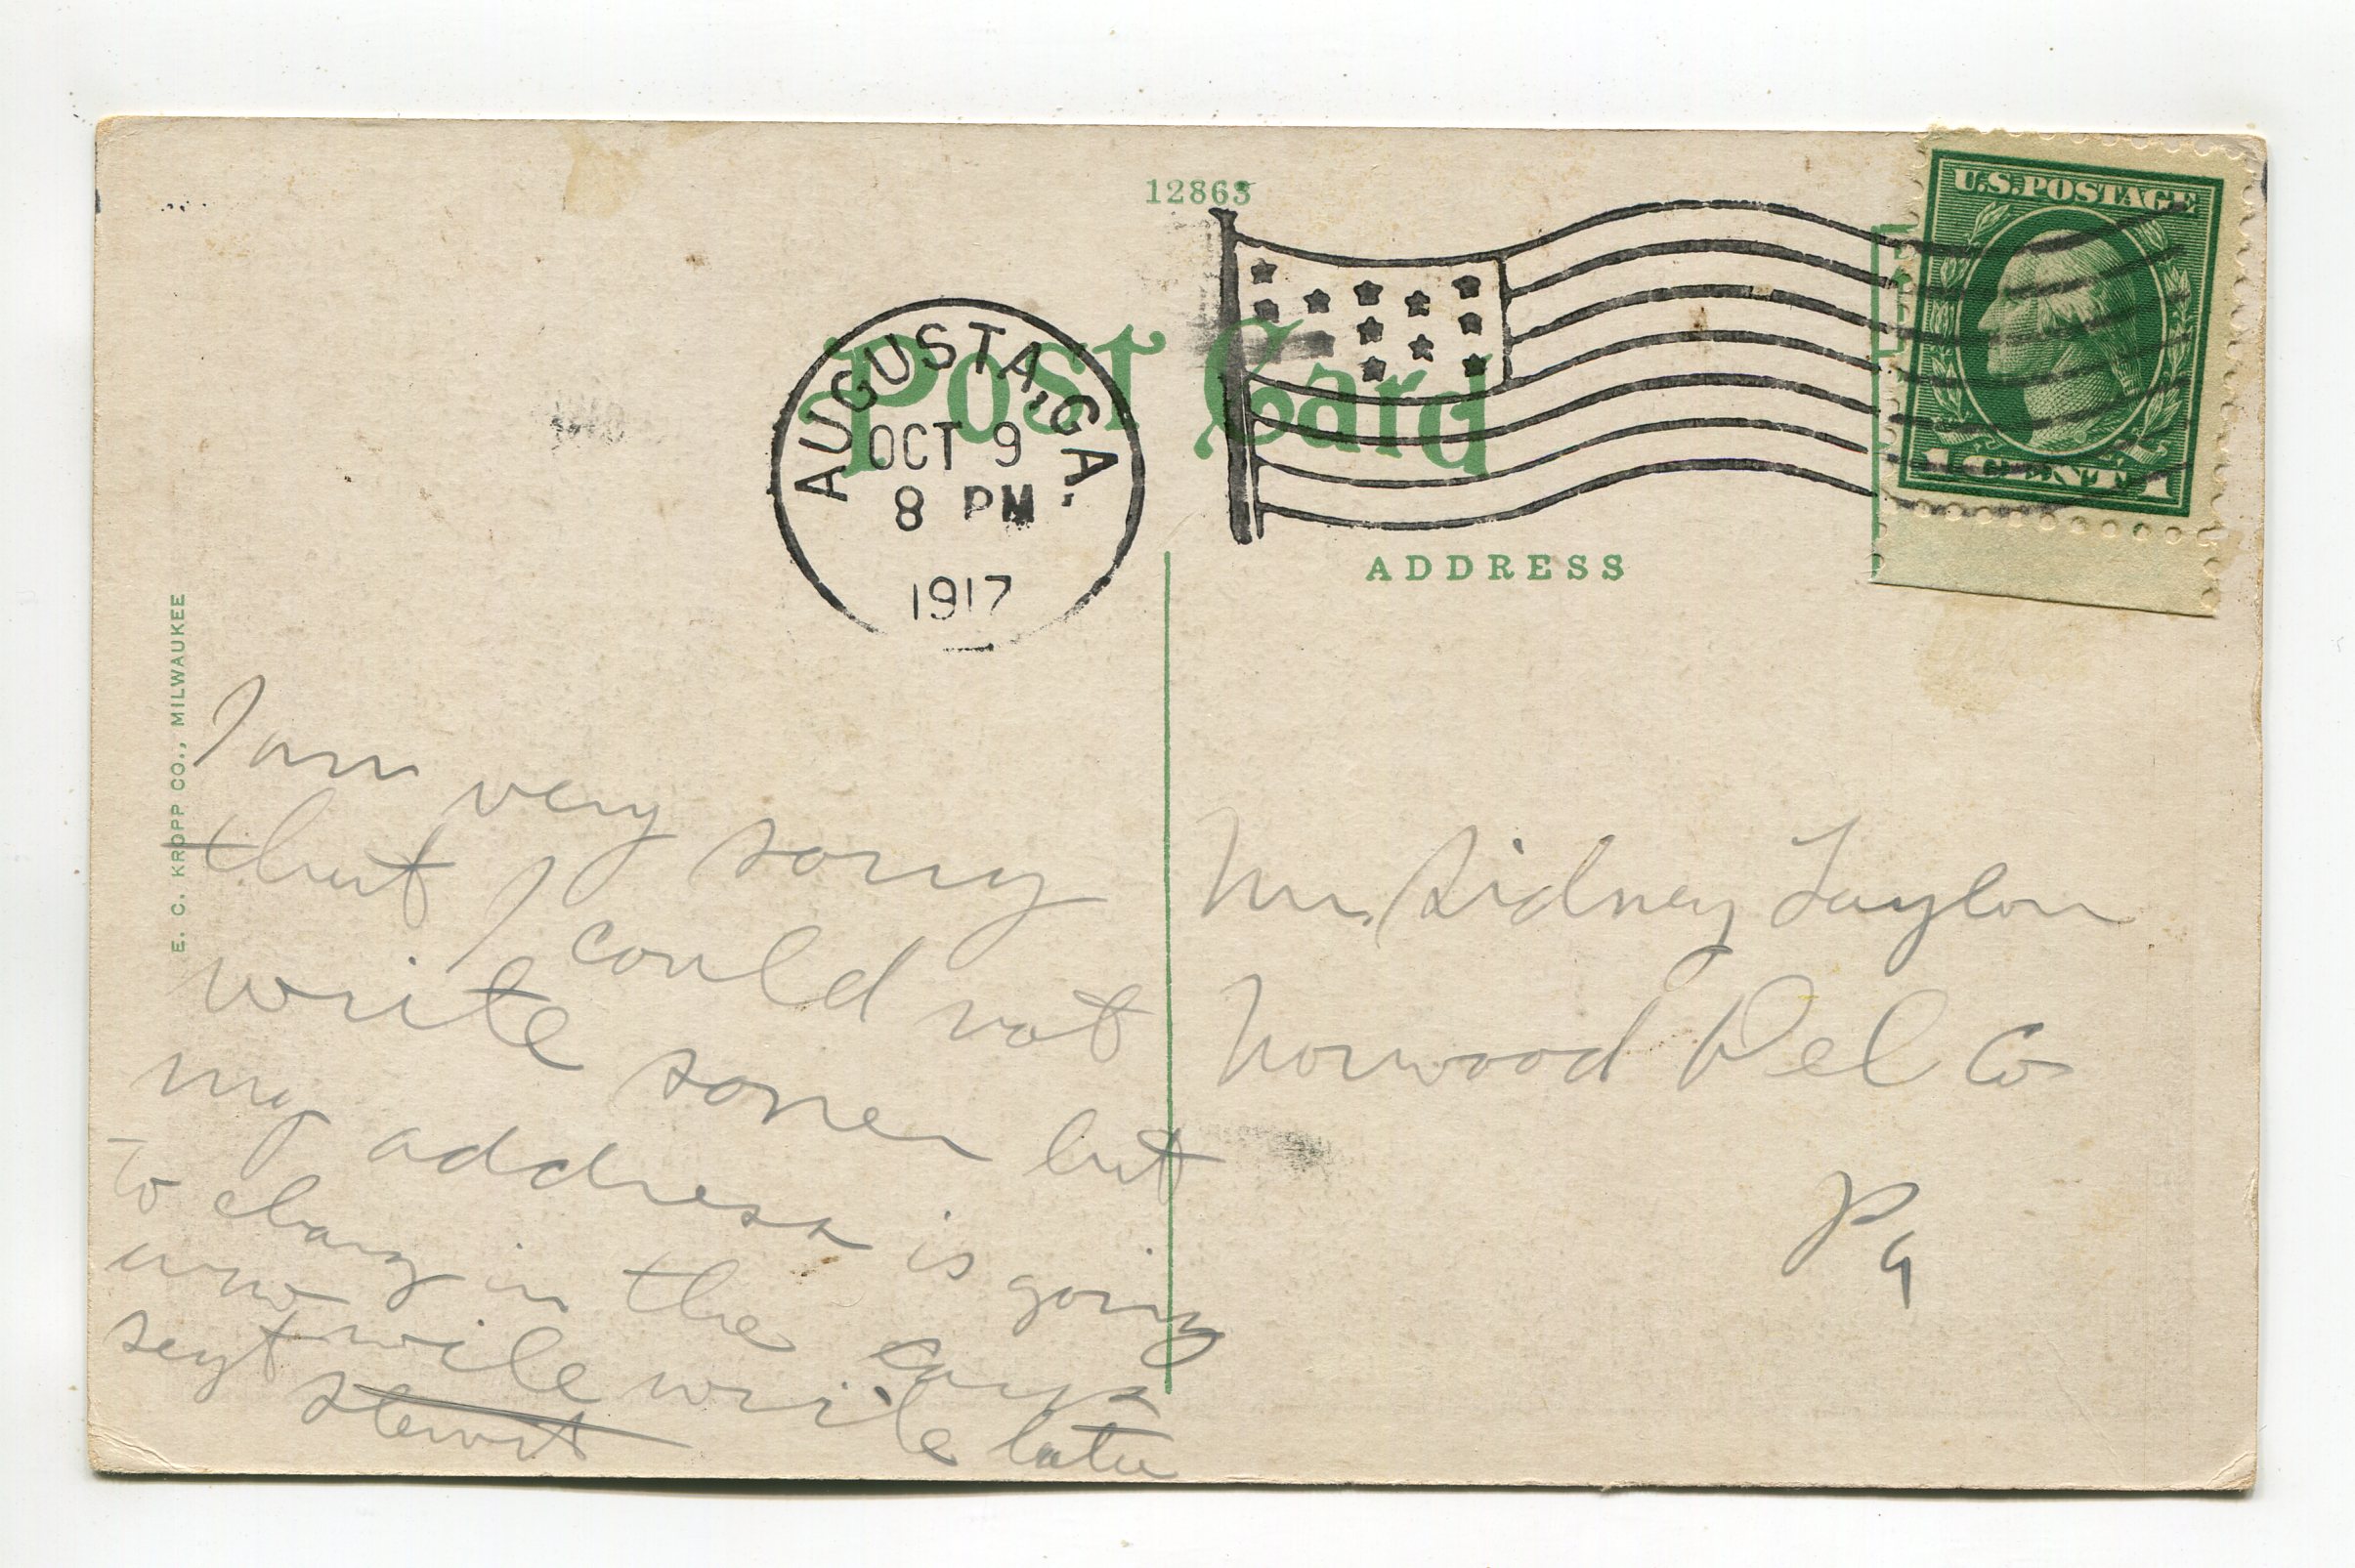 12863
U.S. POSTAGE
1 CENT 1
Post Card
AUGUSTA, GA.
OCT 9
8 PM
1917
ADDRESS
E. C. KROPP CO., MILWAUKEE
I am very sorry
that I could not
write soner but
my address is going
to chang in the
wile write late
Stewart
Mr. Sidney Taylor
Norwood Del Co
Pa